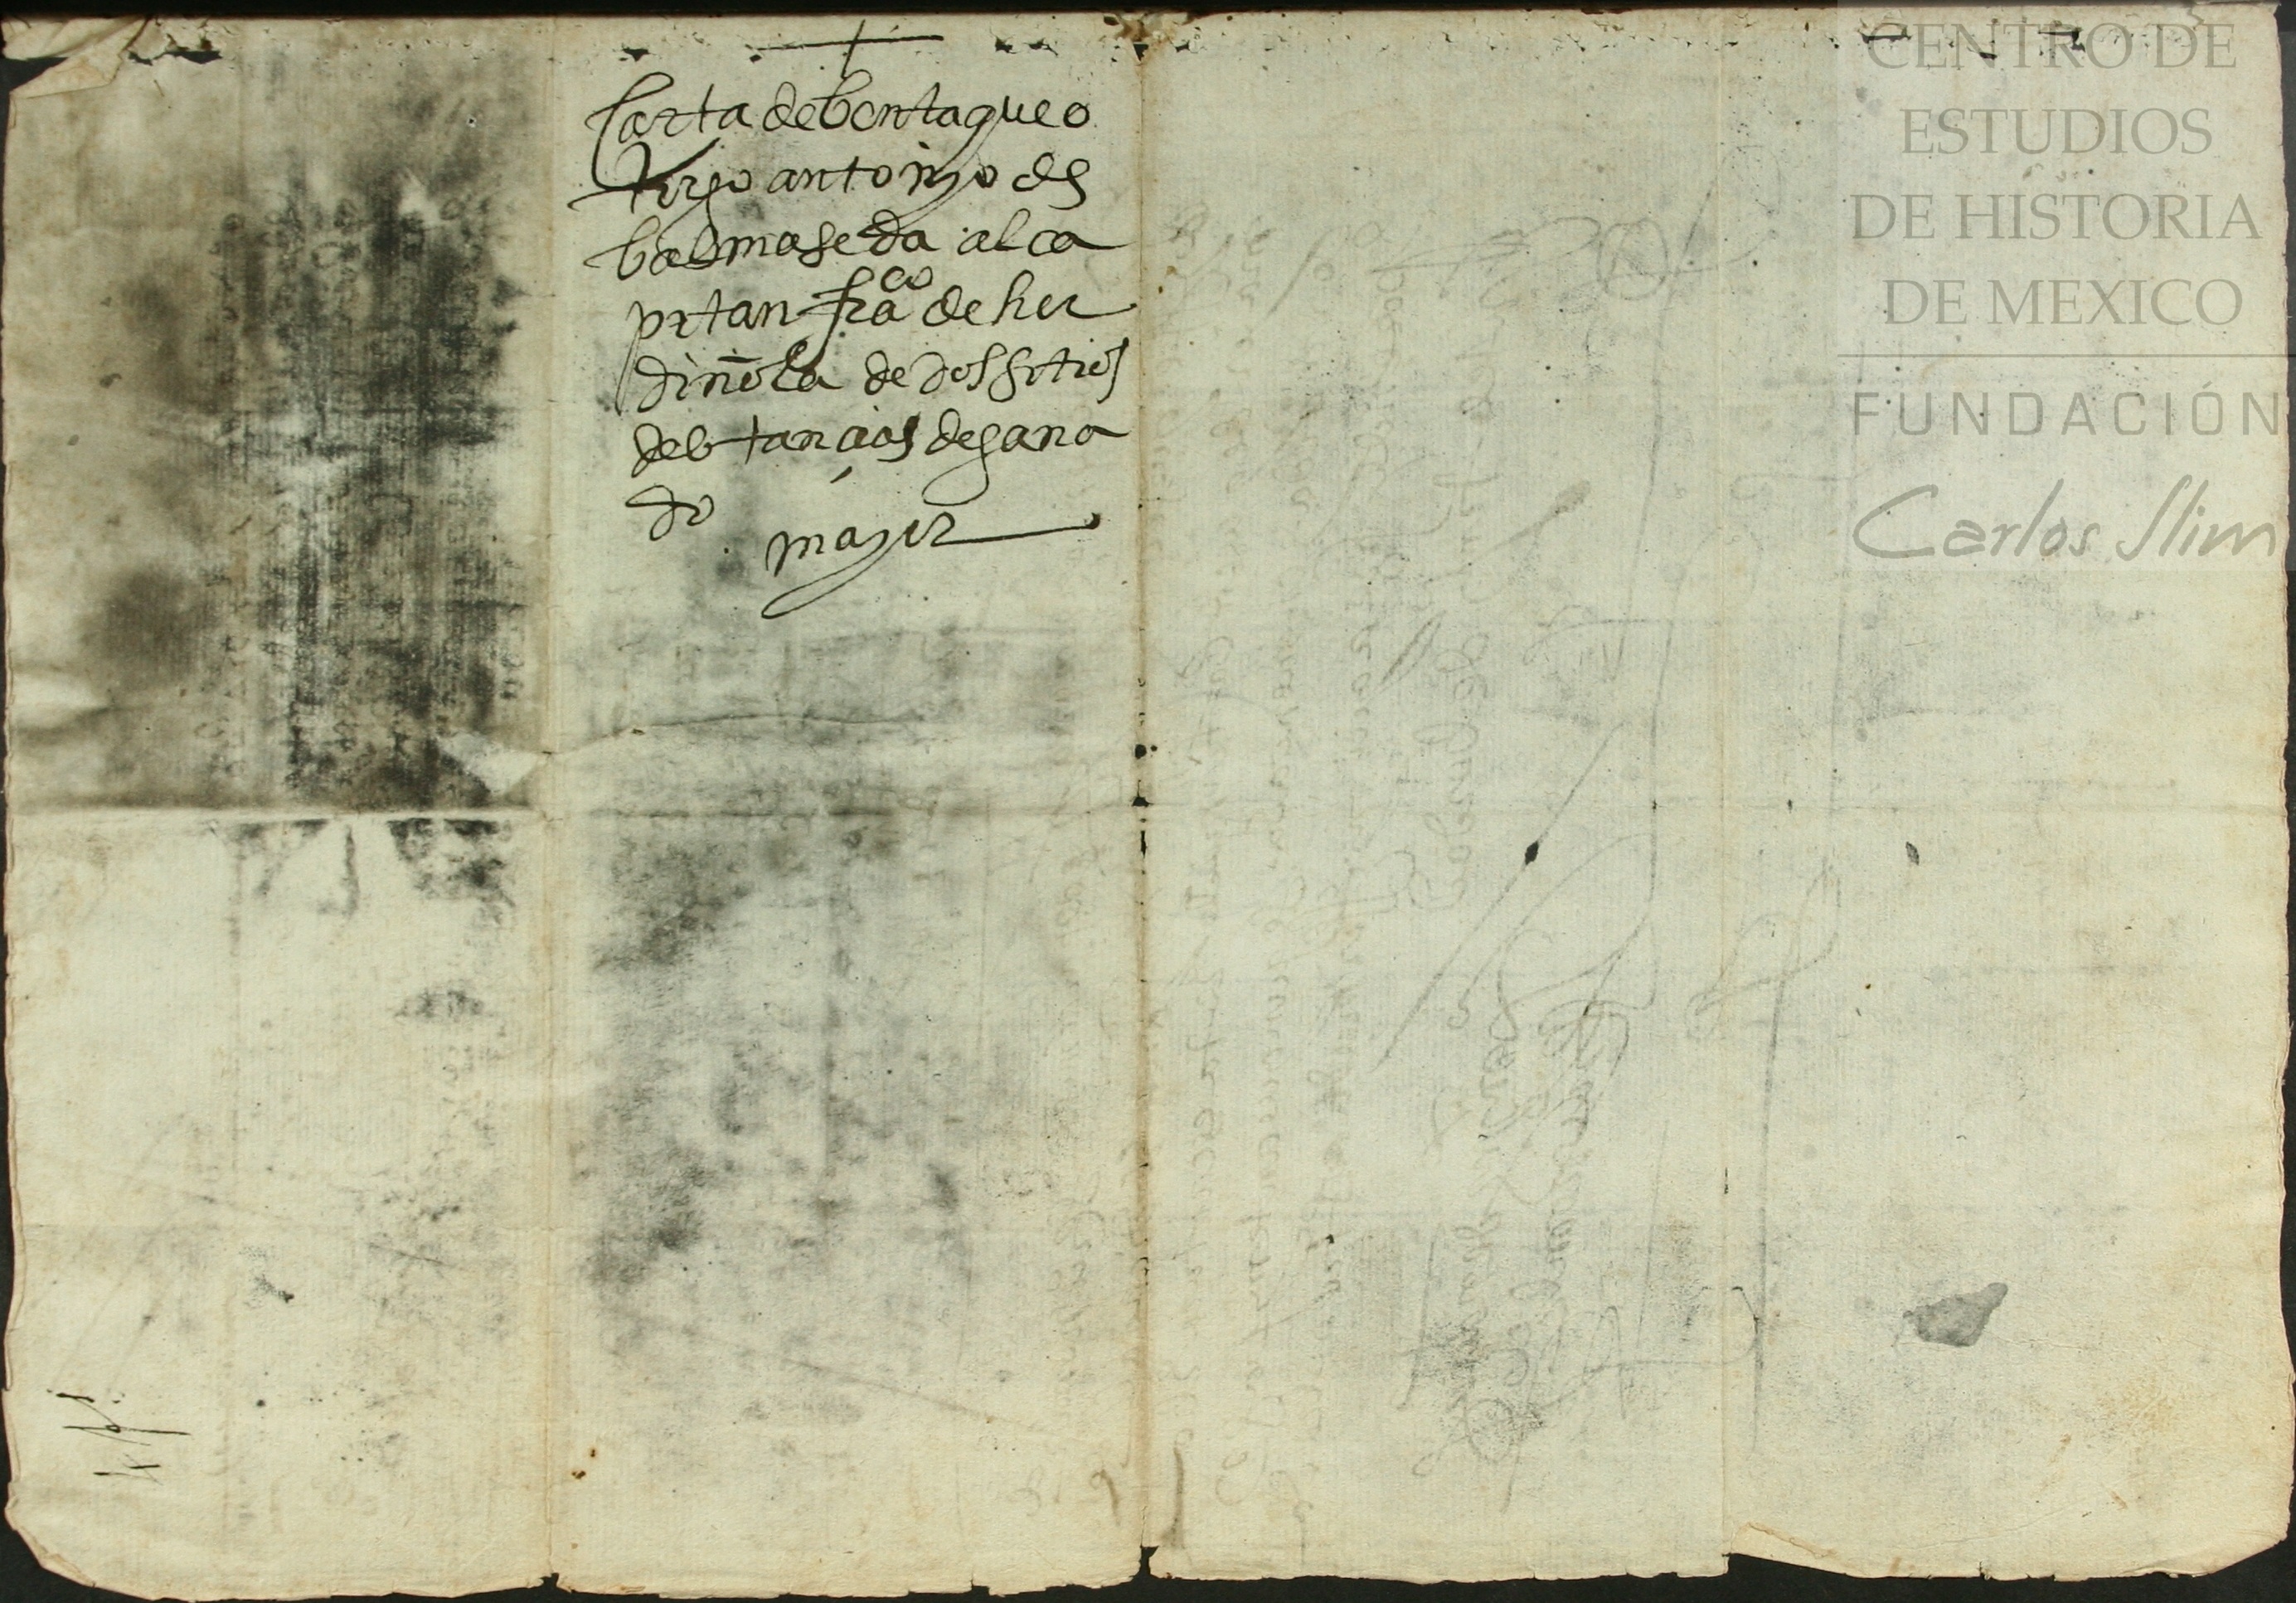 Carta de benta que o
torgo antonyo de
balmaseda al ca
pitan fraco de hur
diñola de dos sitios
de estancias de gana
do mayor
CENTRO DE
ESTUDIOS
DE HISTORIA
DE MEXICO
FUNDACIÓN
Carlos Slim